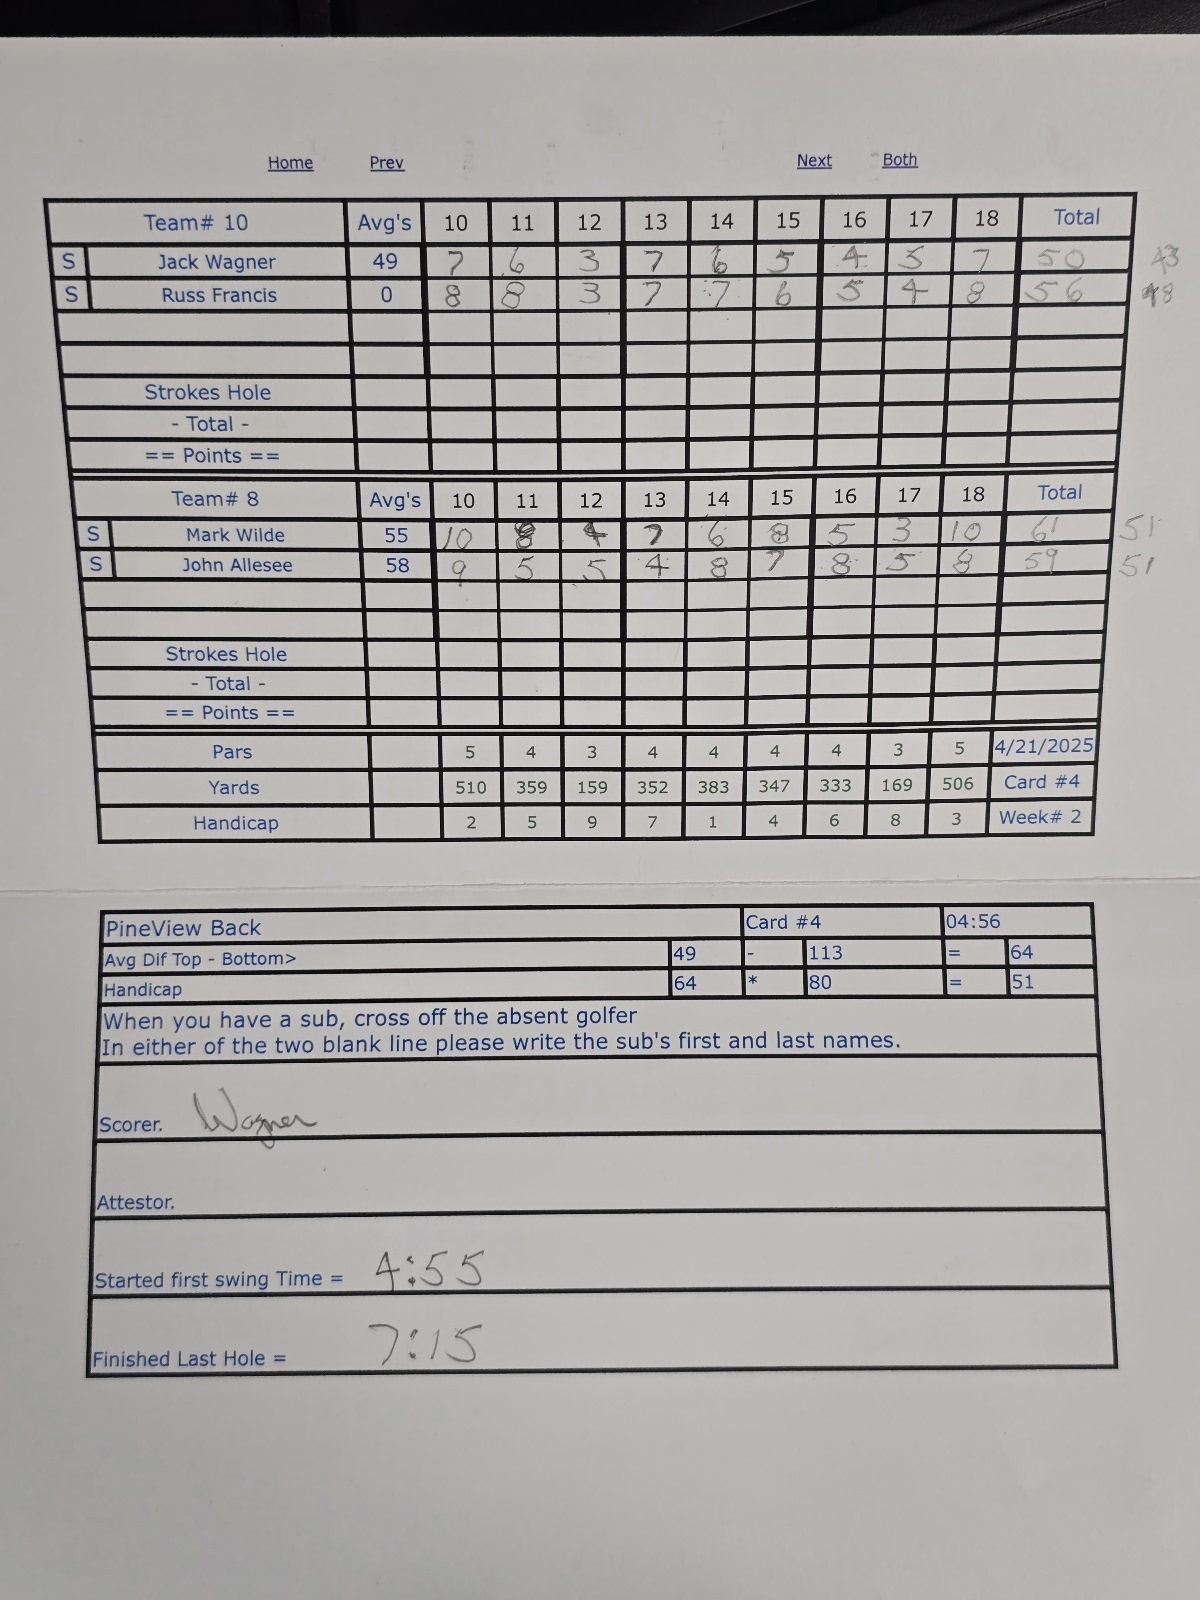 Home Prev Next Both
Team# 10 Avg's 10 11 12 13 14 15 16 17 18 Total
S Jack Wagner 49 7 6 3 7 6 5 4 5 7 50 43
S Russ Francis 0 8 8 3 7 7 6 5 4 8 56 48
Strokes Hole
- Total -
== Points ==
Team# 8 Avg's 10 11 12 13 14 15 16 17 18 Total
S Mark Wilde 55 10 8 4 7 6 8 5 3 10 61 51
S John Allesee 58 9 5 5 4 8 7 8 5 8 59 51
Strokes Hole
- Total -
== Points ==
Pars 5 4 3 4 4 4 4 3 5 4/21/2025
Yards 510 359 159 352 383 347 333 169 506 Card #4
Handicap 2 5 9 7 1 4 6 8 3 Week# 2
PineView Back Card #4 04:56
Avg Dif Top - Bottom> 49 - 113 = 64
Handicap 64 * 80 = 51
When you have a sub, cross off the absent golfer
In either of the two blank line please write the sub's first and last names.
Scorer. Wagner
Attestor.
Started first swing Time = 4:55
Finished Last Hole = 7:15